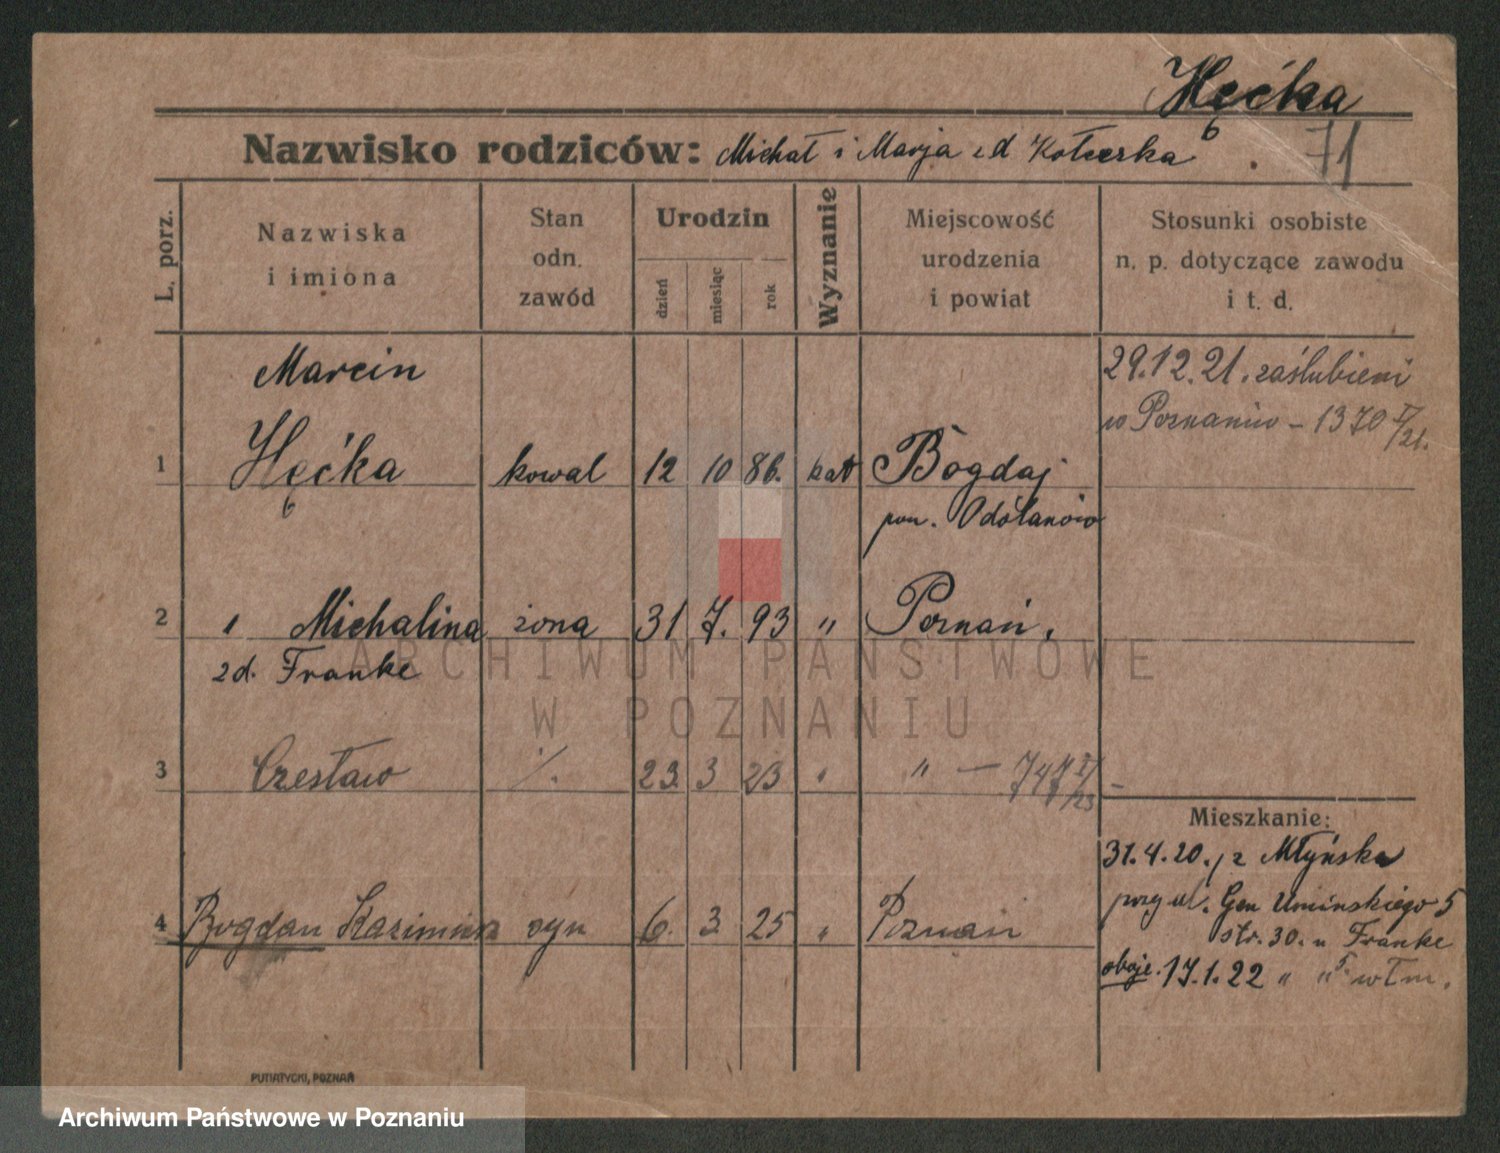 Hęćka
6
71
Nazwisko rodziców: Michał i Marja zd Kołecka
L. porz.
Nazwiska
i imiona
Stan
odn.
zawód
Urodzin
dzień
miesiąc
rok
Wyznanie
Miejscowość
urodzenia
i powiat
Stosunki osobiste
n. p. dotyczące zawodu
i t. d.
Marcin
1 Hęćka kowal 12 10 86. kat Bogdaj
6
pow. Odolanów
29.12.21. zaślubieni
w Poznaniu – 1370 I/21.
2 " Michalina żona 31 7. 93 " Poznań.
zd. Franke
3 Czesław ./. 23. 3 23 " " — 747 I/23
4 Bogdan Kazimierz syn 6. 3. 25 " Poznań
Mieszkanie:
31.4.20. z Młyńska
przy ul. Gen Umińskiego 5
str. 30. u Franke
oboje. 17.1.22 " " 5.
PUTIATYCKI, POZNAŃ
ARCHIWUM PAŃSTWOWE
W POZNANIU
Archiwum Państwowe w Poznaniu